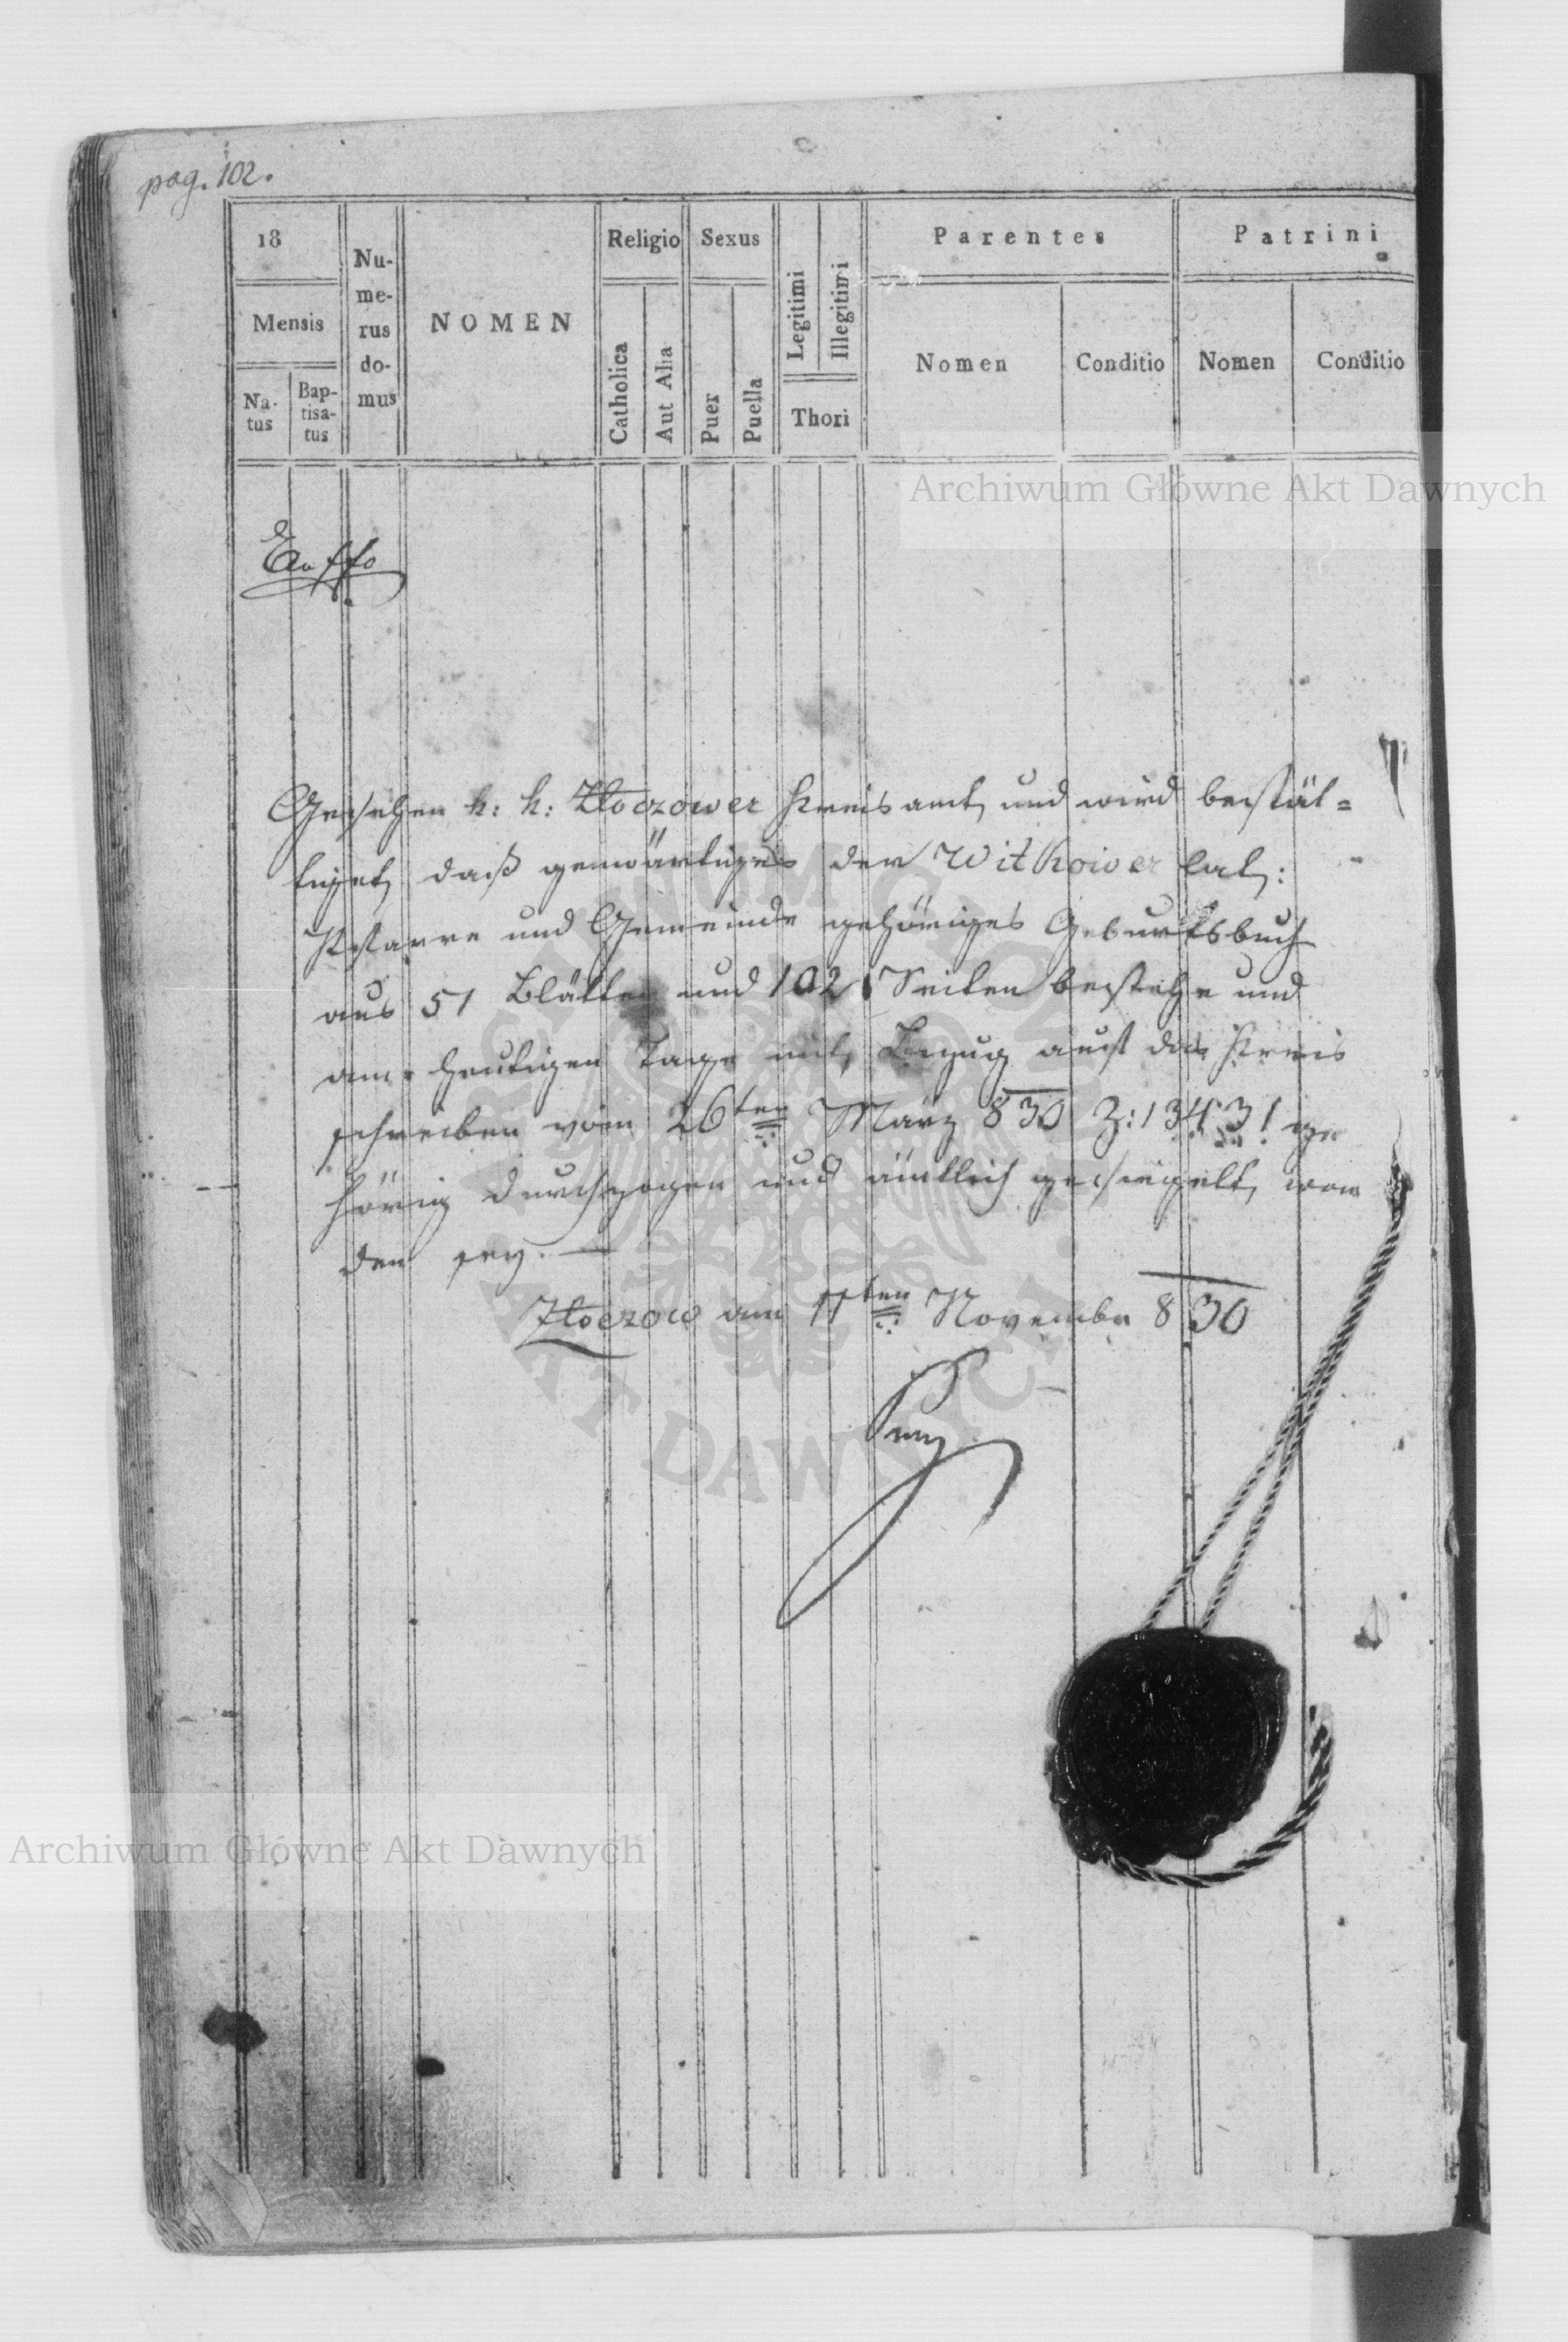 pag. 102.
18
Mensis
Na-
tus
Bap-
tisa-
tus
Nu-
me-
rus
do-
mus
NOMEN
Religio
Catholica
Aut Alia
Sexus
Puer
Puella
Legitimi
Illegitimi
Thori
Parentes
Nomen
Conditio
Patrini
Nomen
Conditio
Archiwum Główne Akt Dawnych
Gesehen k: k: Złoczower Kreisamt, und wird bestät=
tiget, daß gegenwärtiges der Witkower lat:
Pfarre und Gemeinde gehöriges Geburtsbuch
aus 51 Blätter und 102 Seiten bestehe und
am heutigen Tage mit Bezug auf das Kreis
schreiben vom 26ten März 830 Z: 13431 ge
hörig durchzogen und ämtlich gesiegelt wor
den sey. —
Złoczow am 11ten November 830
Archiwum Główne Akt Dawnych